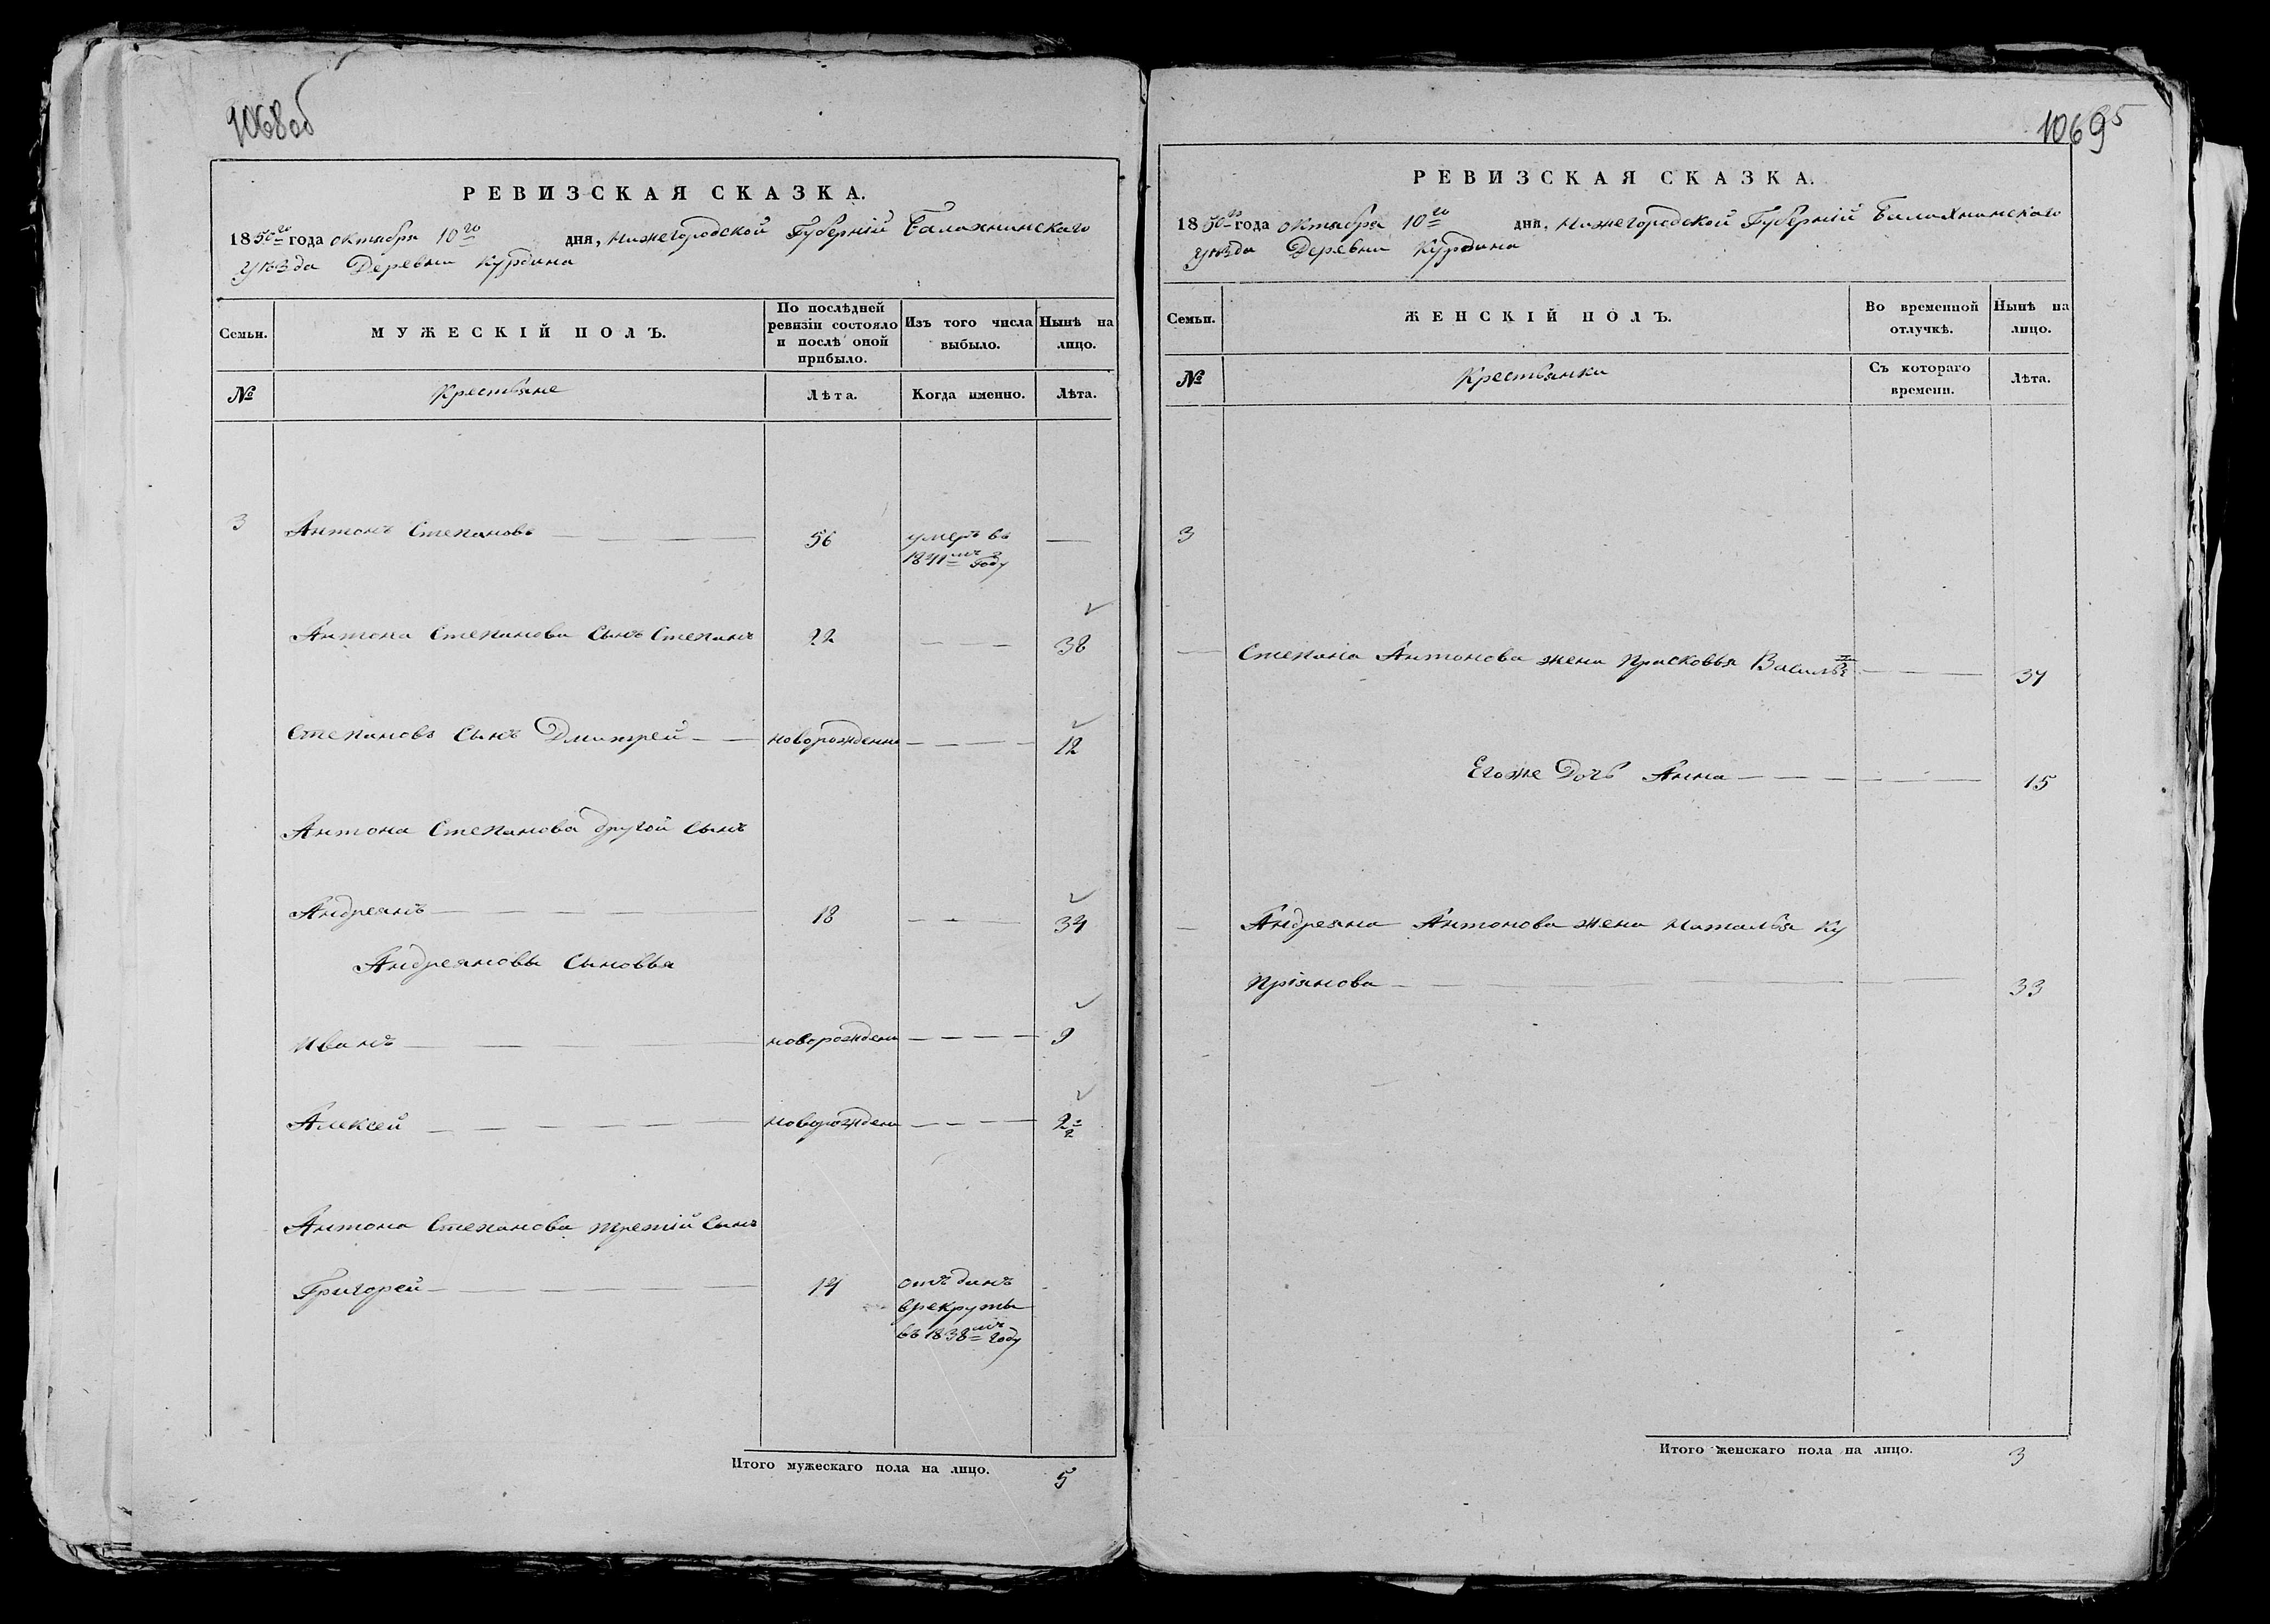 1068об
РЕВИЗСКАЯ СКАЗКА.
1850го года октября 10го дня, Нижегородской Губерніи Балахнинскаго
уѣзда Деревни Курдина
Семьи.
МУЖЕСКІЙ ПОЛЪ.
По послѣдней ревизіи состояло и послѣ оной прибыло.
Изъ того числа выбыло.
Нынѣ на лицо.
№
Крестьяне
Лѣта.
Когда именно.
Лѣта.
3 Антонъ Степановъ — — — 56 умеръ въ —
1841мъ году
Антона Степанова сынъ Степанъ 22 — — 38
Степановъ сынъ Дмитрей — — новорожденны — — — — 12
Антона Степанова другой сынъ
Андреянъ — — — — 18 — — — 34
Андреяновы сыновья
Иванъ — — — — новорожденн — — — — 9
Алексей — — — — — — новорожденн — — — — 2 1/2
Антона Степанова третій сынъ
Григорей — — — — — 14 отъданъ
врекруты
въ 1838мъ году
Итого мужескаго пола на лицо. 5
1069
5
РЕВИЗСКАЯ СКАЗКА.
1850го года октября 10го дня, Нижегородской Губерніи Балахнинскаго
уѣзда Деревни Курдина
Семьи.
ЖЕНСКІЙ ПОЛЪ.
Во временной отлучкѣ.
Нынѣ на лицо.
№
Крестьянки
Съ котораго времени.
Лѣта.
3
— Степана Антонова жена Прасковья Василье — — — 37
Егоже Дочь Анна — — — — — — 15
— Андреяна Антонова жена Наталья Ку
пріянова — — — — — — — 33
Итого женскаго пола на лицо. 3